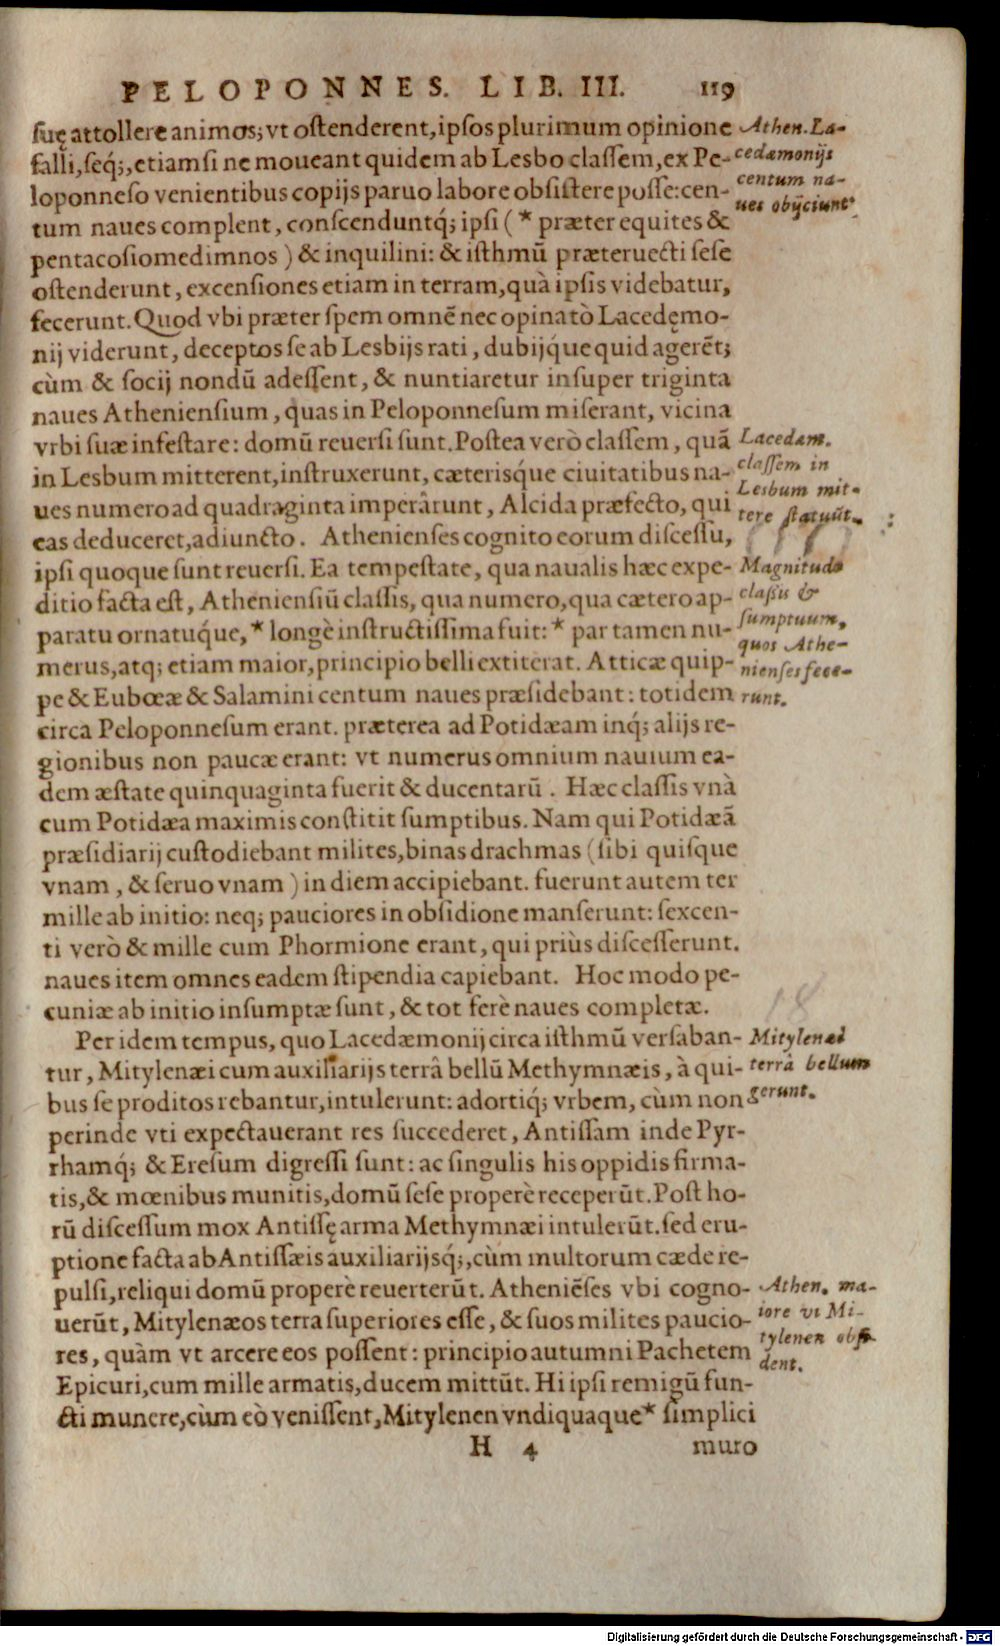 PELOPONNES. LIB. III. 119
ſuę attollere animos; vt oſtenderent, ipſos plurimum opinione
falli, ſeq́;, etiamſi ne moueant quidem ab Lesbo claſſem, ex Pe-
loponneſo venientibus copijs paruo labore obſiſtere poſſe: cen-
tum naues complent, conſcenduntq́; ipſi (* præter equites &
pentacoſiomedimnos) & inquilini: & iſthmũ præteruecti ſeſe
oſtenderunt, excenſiones etiam in terram, quà ipſis videbatur,
fecerunt. Quod vbi præter ſpem omnẽ nec opinatò Lacedęmo-
nij viderunt, deceptos ſe ab Lesbijs rati, dubijq́ue quid agerẽt;
cùm & ſocij nondũ adeſſent, & nuntiaretur inſuper triginta
naues Athenienſium, quas in Peloponneſum miſerant, vicina
vrbi ſuæ infeſtare: domũ reuerſi ſunt. Poſtea verò claſſem, quã
in Lesbum mitterent, inſtruxerunt, cæterisq́ue ciuitatibus na-
ues numero ad quadraginta imperârunt, Alcida præfecto, qui
eas deduceret, adiuncto. Athenienſes cognito eorum diſceſſu,
ipſi quoque ſunt reuerſi. Ea tempeſtate, qua naualis hæc expe-
ditio facta eſt, Athenienſiũ claſſis, qua numero, qua cætero ap-
paratu ornatuq́ue, * longè inſtructiſſima fuit: * par tamen nu-
merus, atq; etiam maior, principio belli extiterat. Atticæ quip-
pe & Eubœæ & Salamini centum naues præſidebant: totidem
circa Peloponneſum erant. præterea ad Potidæam inq́; alijs re-
gionibus non paucæ erant: vt numerus omnium nauium ea-
dem æſtate quinquaginta fuerit & ducentarũ. Hæc claſſis vnà
cum Potidæa maximis conſtitit ſumptibus. Nam qui Potidæã
præſidiarij cuſtodiebant milites, binas drachmas (ſibi quiſque
vnam, & ſeruo vnam) in diem accipiebant. fuerunt autem ter
mille ab initio: neq; pauciores in obſidione manſerunt: ſexcen-
ti verò & mille cum Phormione erant, qui priùs diſceſſerunt.
naues item omnes eadem ſtipendia capiebant. Hoc modo pe-
cuniæ ab initio inſumptæ ſunt, & tot ferè naues completæ.
Per idem tempus, quo Lacedæmonij circa iſthmũ verſaban-
tur, Mitylenæi cum auxiliarijs terrâ bellũ Methymnæis, à qui-
bus ſe proditos rebantur, intulerunt: adortiq́; vrbem, cùm non
perinde vti expectauerant res ſuccederet, Antiſſam inde Pyr-
rhamq́; & Ereſum digreſſi ſunt: ac ſingulis his oppidis firma-
tis, & mœnibus munitis, domũ ſeſe properè receperũt. Poſt ho-
rũ diſceſſum mox Antiſſę arma Methymnæi intulerũt. ſed eru-
ptione facta ab Antiſſæis auxiliarijsq́;, cùm multorum cæde re-
pulſi, reliqui domũ properè reuerterũt. Atheniẽſes vbi cogno-
uerũt, Mitylenæos terra ſuperiores eſſe, & ſuos milites paucio-
res, quàm vt arcere eos poſſent: principio autumni Pachetem
Epicuri, cum mille armatis, ducem mittũt. Hi ipſi remigũ fun-
cti munere, cùm eò veniſſent, Mitylenen vndiquaque * ſimplici
H 4 muro
Athen. La-
cedæmonijs
centum na-
ues obijciunt.
Lacedæm.
claſſem in
Lesbum mit-
tere ſtatuũt.
Magnitudo
claſſis &
ſumptuum,
quos Athe-
nienſes fece-
runt.
18
Mitylenæi
terrâ bellum
gerunt.
Athen. ma-
iore vi Mi-
tylenen obſi-
dent.
Digitalisierung gefördert durch die Deutsche Forschungsgemeinschaft - DFG